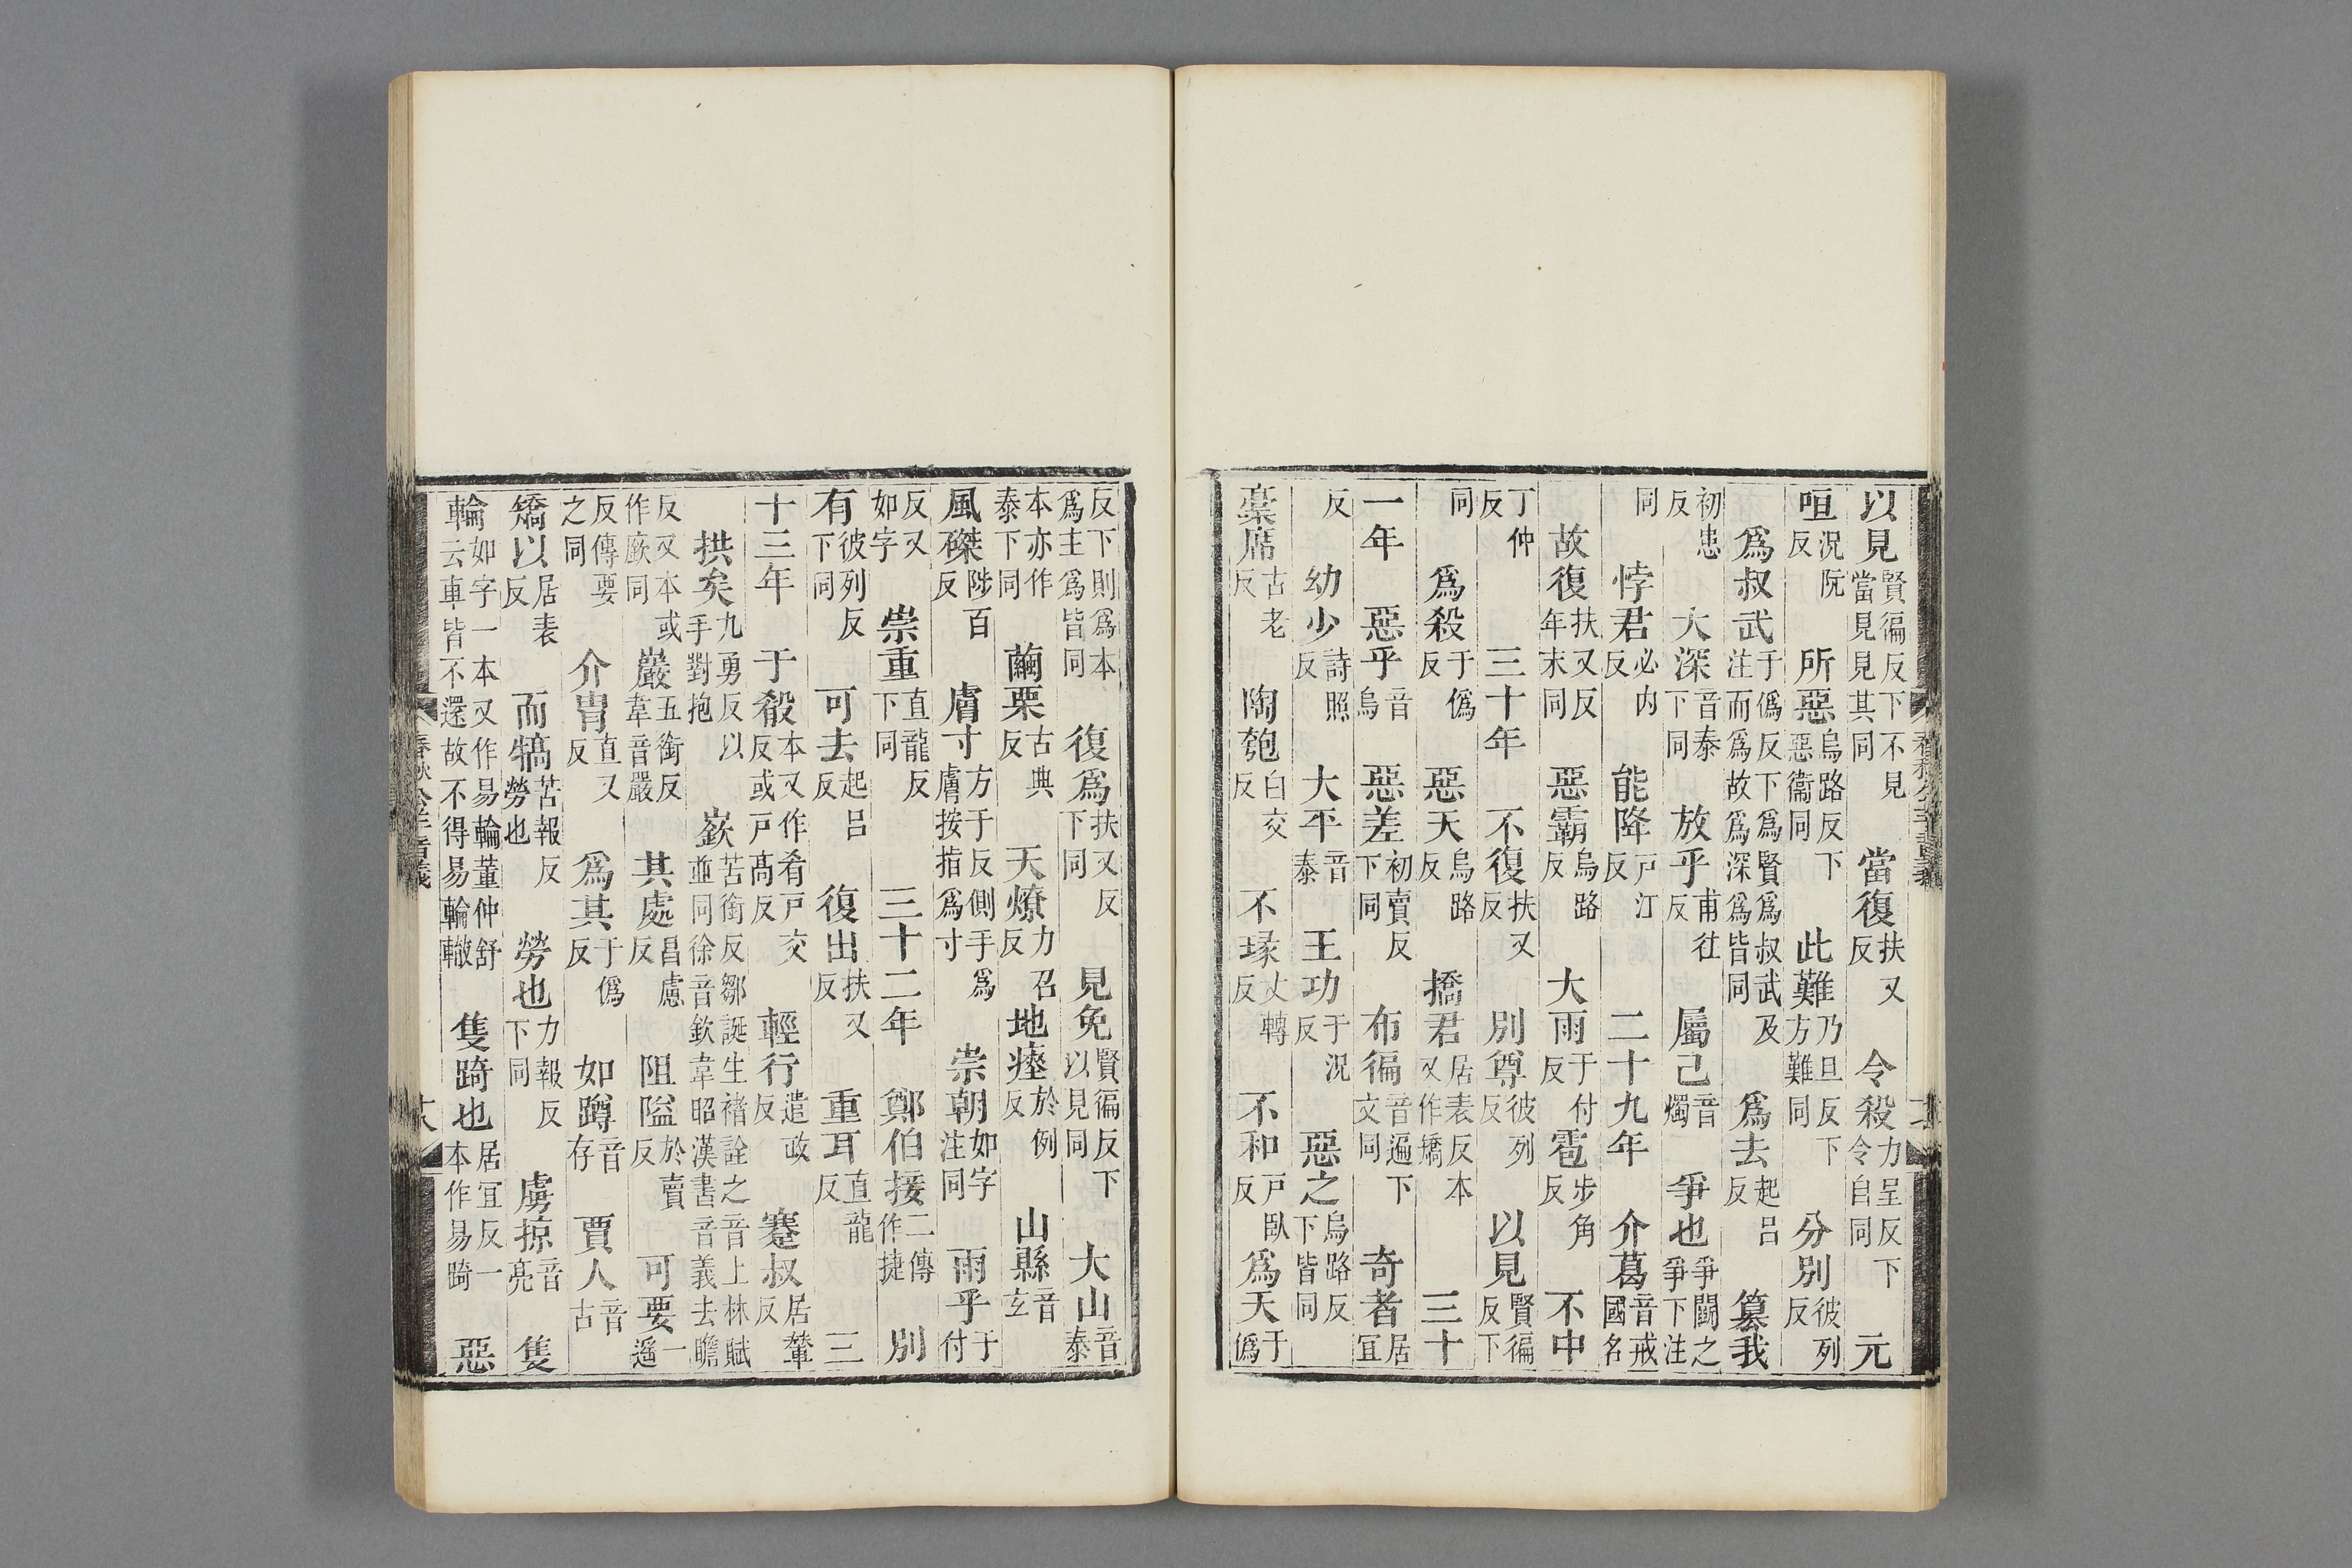 以見賢徧反下不見當見見其同 當復扶又反 令殺力呈反下令自同 元
咺況阮反 所惡烏路反下惡衞同 此難乃旦反下方難同 分別彼列反
爲叔武于僞反下爲賢爲叔武及注而爲故爲深爲皆同 爲去起呂反 簒我
初患反 大深音泰下同 放乎甫往反 屬己音燭 爭也爭鬭之爭下注
同 悖君必内反 能降戸江反 二十九年 介葛音戒國名
故復扶又反年末同 惡霸烏路反 大雨于付反 雹步角反 不中
丁仲反 三十年 不復扶又反 別尊彼列反 以見賢徧反下
同 爲殺于僞反 惡天烏路反 撟君居表反本又作矯 三十
一年 惡乎音烏 惡差初賣反下同 布徧音遍下文同 奇者居宜
反 幼少詩照反 大平音泰 王功于況反 惡之烏路反下皆同
稾席古老反 陶匏白交反 不瑑丈轉反 不和戸臥反 爲天于僞
反下則爲本爲主爲皆同 復爲扶又反下同 見免賢徧反下以見同 大山音泰
本亦作泰下同 繭栗古典反 天燎力召反 地瘞於例反 山縣音玄
風磔陟百反 膚寸方于反側手爲膚按指爲寸 崇朝如字注同 雨乎于付
反又如字 崇重直龍反下同 三十二年 鄭伯接二傳作捷 別
有彼列反下同 可去起呂反 復出扶又反 重耳直龍反 三
十三年 于殽本又作肴戸交反或戸髙反 輕行遣政反 蹇叔居輦反
拱矣九勇反以手對抱 嶔苦銜反鄒誕生褚詮之音上林賦並同徐音欽韋昭漢書音義去瞻
反又本或作廞同 巖五銜反韋音嚴 其處昌慮反 阻隘於賣反 可要一遥
反傳要之同 介胄直又反 爲其于僞反 如蹲音存 賈人音古
矯以居表反 而犒苦報反勞也 勞也力報反下同 虜掠音亮 隻
輪如字一本又作易輪董仲舒云車皆不還故不得易輪轍 隻踦也居宜反一本作易踦 惡